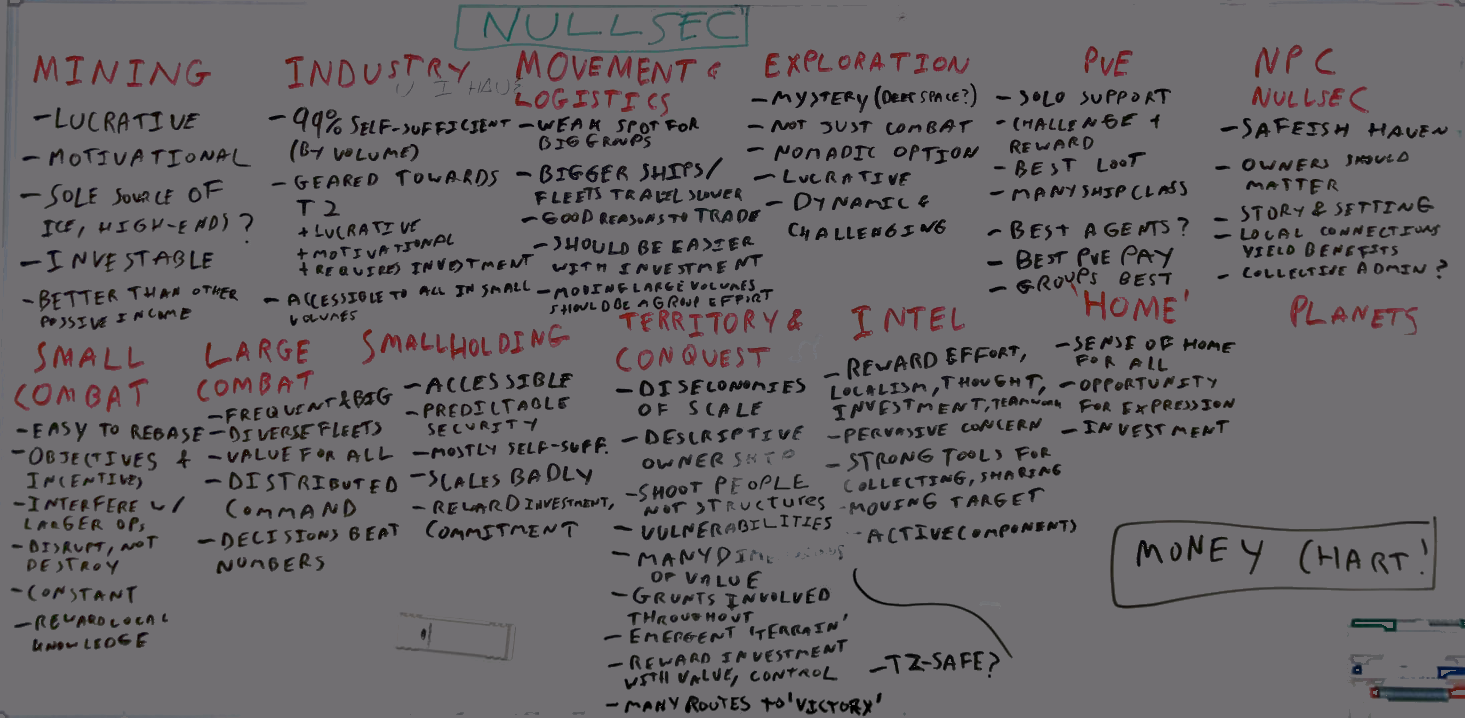 NULLSEC
MINING
- LUCRATIVE
- MOTIVATIONAL
- SOLE SOURCE OF
ICE, HIGH-ENDS?
- INVESTABLE
- BETTER THAN OTHER
PASSIVE INCOME
INDUSTRY
I HAVE
- 99% SELF-SUFFICIENT
(BY VOLUME)
- GEARED TOWARDS
T2
+ LUCRATIVE
+ MOTIVATIONAL
+ REQUIRES INVESTMENT
- ACCESSIBLE TO ALL IN SMALL
VOLUMES
MOVEMENT &
LOGISTICS
- WEAK SPOT FOR
BIG GROUPS
- BIGGER SHIPS/
FLEETS TRAVEL SLOWER
- GOOD REASONS TO TRADE
- SHOULD BE EASIER
WITH INVESTMENT
- MOVING LARGE VOLUMES
SHOULD BE A GROUP EFFORT
EXPLORATION
- MYSTERY (DEEP SPACE?)
- NOT JUST COMBAT
- NOMADIC OPTION
- LUCRATIVE
- DYNAMIC &
CHALLENGING
PVE
- SOLO SUPPORT
- CHALLENGE +
REWARD
- BEST LOOT
- MANY SHIP CLASS
- BEST AGENTS?
- BEST PVE PAY
- GROUPS BEST
NPC
NULLSEC
- SAFEISH HAVEN
- OWNERS SHOULD
MATTER
- STORY & SETTING
- LOCAL CONNECTIONS
YIELD BENEFITS
- COLLECTIVE ADMIN?
SMALL
COMBAT
- EASY TO REBASE
- OBJECTIVES +
INCENTIVES
- INTERFERE W/
LARGER OPS
- DISRUPT, NOT
DESTROY
- CONSTANT
- REWARD LOCAL
KNOWLEDGE
LARGE
COMBAT
- FREQUENT & BIG
- DIVERSE FLEETS
- VALUE FOR ALL
- DISTRIBUTED
COMMAND
- DECISIONS BEAT
NUMBERS
SMALLHOLDING
- ACCESSIBLE
- PREDICTABLE
SECURITY
- MOSTLY SELF-SUFF.
- SCALES BADLY
- REWARD INVESTMENT,
COMMITMENT
TERRITORY &
CONQUEST
- DISECONOMIES
OF SCALE
- DESCRIPTIVE
OWNERSHIP
- SHOOT PEOPLE
NOT STRUCTURES
- VULNERABILITIES
- MANY DIMENSIONS
OF VALUE
- GRUNTS INVOLVED
THROUGHOUT
- EMERGENT 'TERRAIN'
- REWARD INVESTMENT
WITH VALUE, CONTROL
- MANY ROUTES TO 'VICTORY'
INTEL
- REWARD EFFORT,
LOCALISM, THOUGHT,
INVESTMENT, TEAMWORK
- PERVASIVE CONCERN
- STRONG TOOLS FOR
COLLECTING, SHARING
- MOVING TARGET
- ACTIVE COMPONENTS
- TZ-SAFE?
'HOME'
- SENSE OF HOME
FOR ALL
- OPPORTUNITY
FOR EXPRESSION
- INVESTMENT
PLANETS
MONEY CHART!